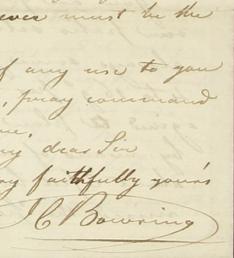 ever must be the
of any use to you
, pray command
me.
my dear Sir
ry faithfully yours
J C Bowring